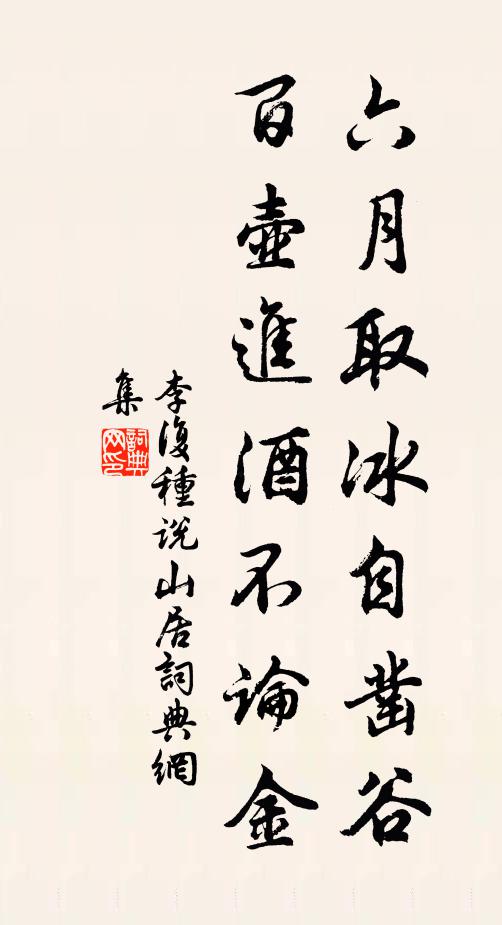 六月取冰自凿谷
百壺進酒不論金
李復種説山居詞典網
集
詞典
网印